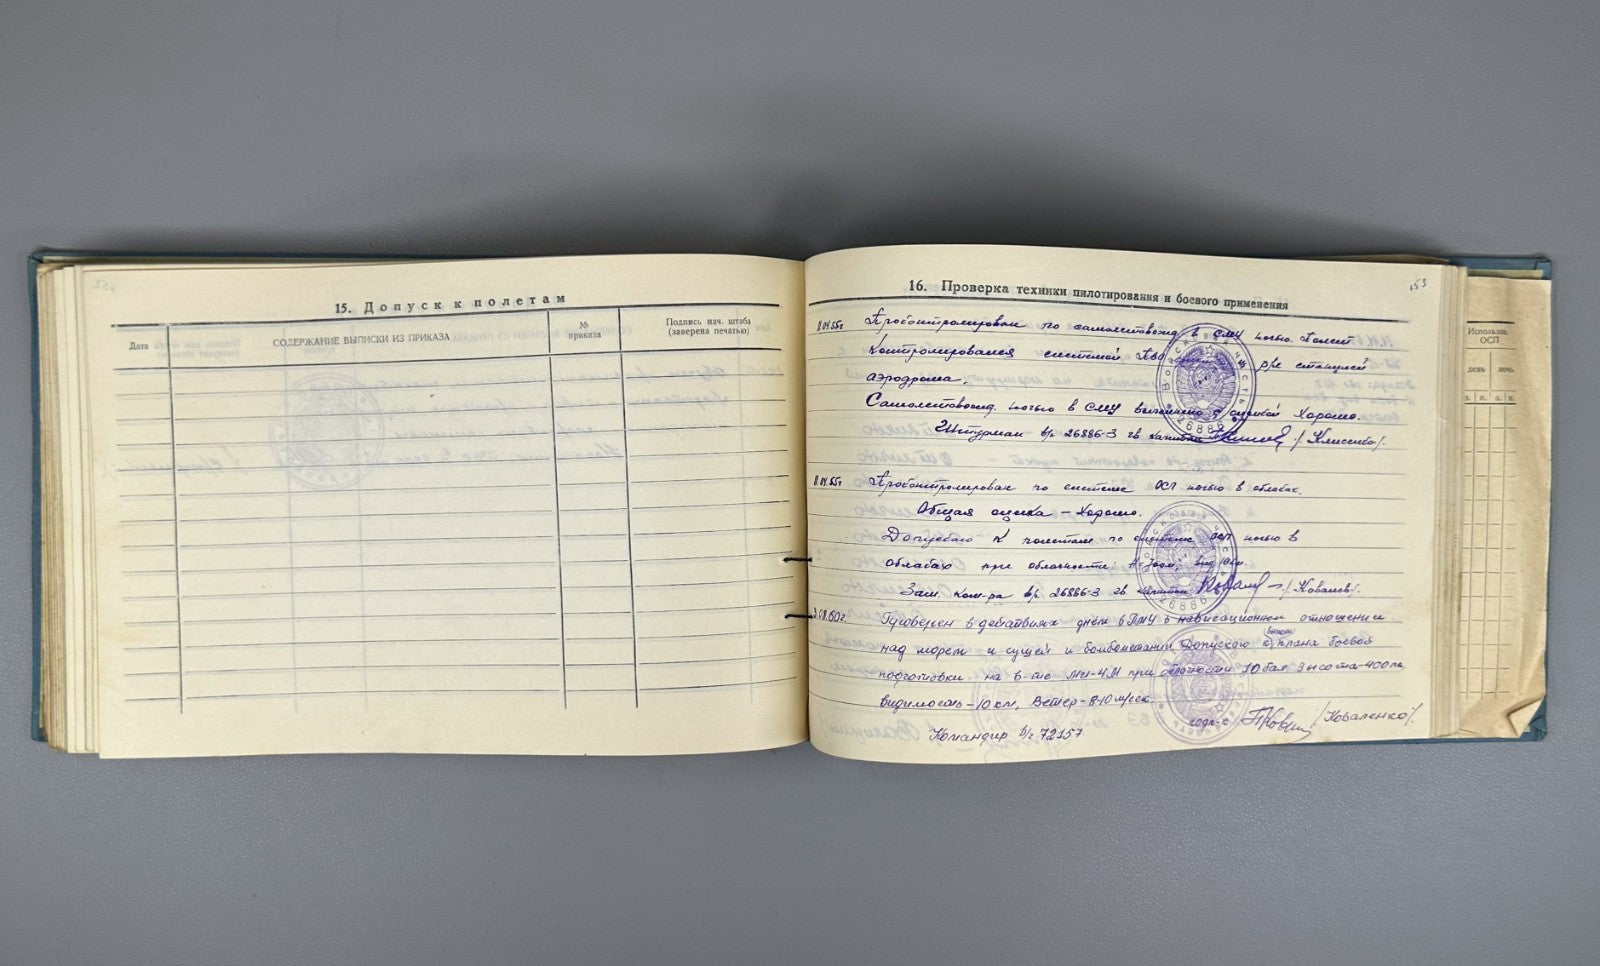 15. Допуск к полетам
Дата
СОДЕРЖАНИЕ ВЫПИСКИ ИЗ ПРИКАЗА
№
приказа
Подпись нач. штаба
(заверена печатью)
16. Проверка техники пилотирования и боевого применения
53
11.04.55г Проконтролирован по самолетовожд. в СМУ ночью. Полет
контролировался системой р/с станцией
аэродрома.
Самолетовожд. ночью в СМУ выполнено с оценкой Хорошо.
Штурман в/ч 26886-З гв капитан /Клисенко/.
11.04.55г Проконтролирован по системе ОСП ночью в облаках.
Общая оценка – Хорошо.
Допускаю к полетам по системе ОСП ночью в
облаках при облачности
Зам. ком-ра в/ч 26886-З гв капитан /Ковалев/.
3.08.60г. Проверен в действиях днём в ПМУ в навигационном отношении
над морем и сушей и бомбометании Допускаю к плана боевой
подготовки на в-те МИ-4М при облачности 10 бал. Высота-400м,
видимость – 10 км, Ветер – 8-10 м/сек.
Командир в/ч 72157 подп-к /Коваленко/.
ВОЙСКОВАЯ ЧАСТЬ
26886
26886
Использов.
ОСП
день
ночь
з. п. з. п.